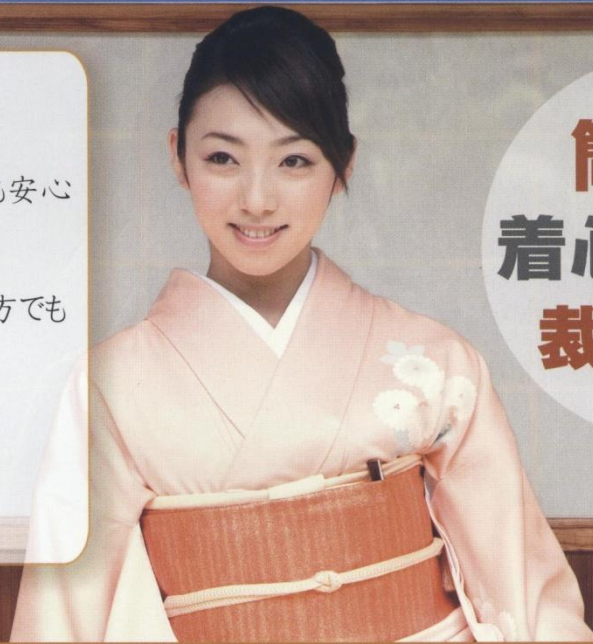 安心
方でも
着心
裁